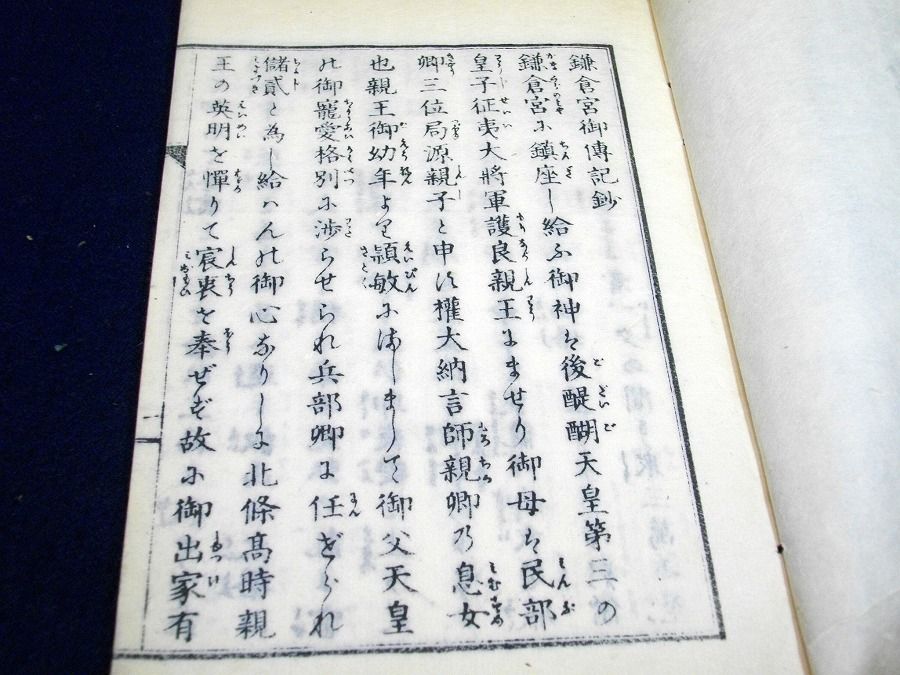 鎌倉宮御傳記鈔
鎌倉宮に鎮座し給ふ御神は後醍醐天皇第三の
皇子征夷大將軍護良親王にませり御母は民部
卿三位局源親子と申す權大納言師親卿乃息女
也親王御幼年より穎敏にましまして御父天皇
の御寵愛格別に渉らせられ兵部卿に任ぜられ
儲貳と為し給はんの御心なりしに北條髙時親
王の英明を憚りて宸衷を奉ぜず故に御出家有